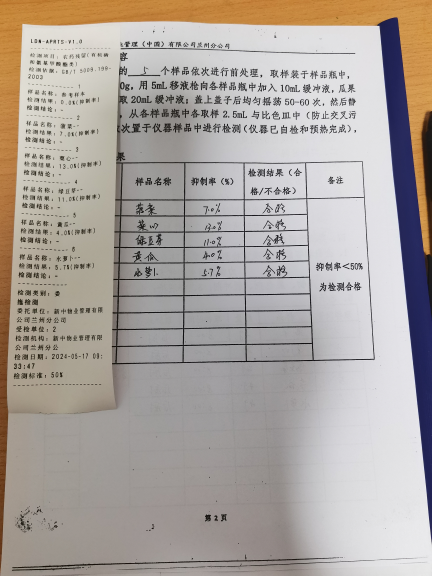 LDN-APRTS-V1.0
检测项目: 农药残留(有机磷
和氨基甲酸酯类)
检测依据: GB/T 5009.199-
2003
1
样品名称: 参考样本
检测结果: 0.0%(抑制率)
检测结论: -
2
样品名称: 菠菜--
检测结果: 7.0%(抑制率)
检测结论: -
3
样品名称: 菜心--
检测结果: 13.0%(抑制率)
检测结论: -
4
样品名称: 绿豆芽--
检测结果: 11.0%(抑制率)
检测结论: -
5
样品名称: 黄瓜--
检测结果: 4.0%(抑制率)
检测结论: -
6
样品名称: 水萝卜--
检测结果: 5.7%(抑制率)
检测结论: -
检测类别: 委
托检测
委托单位: 新中物业管理有限
公司兰州分公司
受检单位: 2
检测机构: 新中物业管理有限
公司兰州分公
检测日期: 2024-05-17 09:
33:47
检测标准: 50%
业管理（中国）有限公司兰州分公司
容
的 5 个样品依次进行前处理，取样装于样品瓶中，
0g，用 5mL 移液枪向各样品瓶中加入 10mL 缓冲液，瓜果
取 20mL 缓冲液；盖上盖子后均匀摇荡 50-60 次，然后静
，从各样品瓶中各取样 2.5mL 与比色皿中（防止交叉污
次置于仪器样品中进行检测（仪器已自检和预热完成），
果
样品名称 抑制率（%） 检测结果（合格/不合格） 备注
菠菜 7.0% 合格
菜心 13.0% 合格
绿豆芽 11.0% 合格
黄瓜 4.0% 合格
水萝卜 5.7% 合格
抑制率＜50%
为检测合格
第 2 页